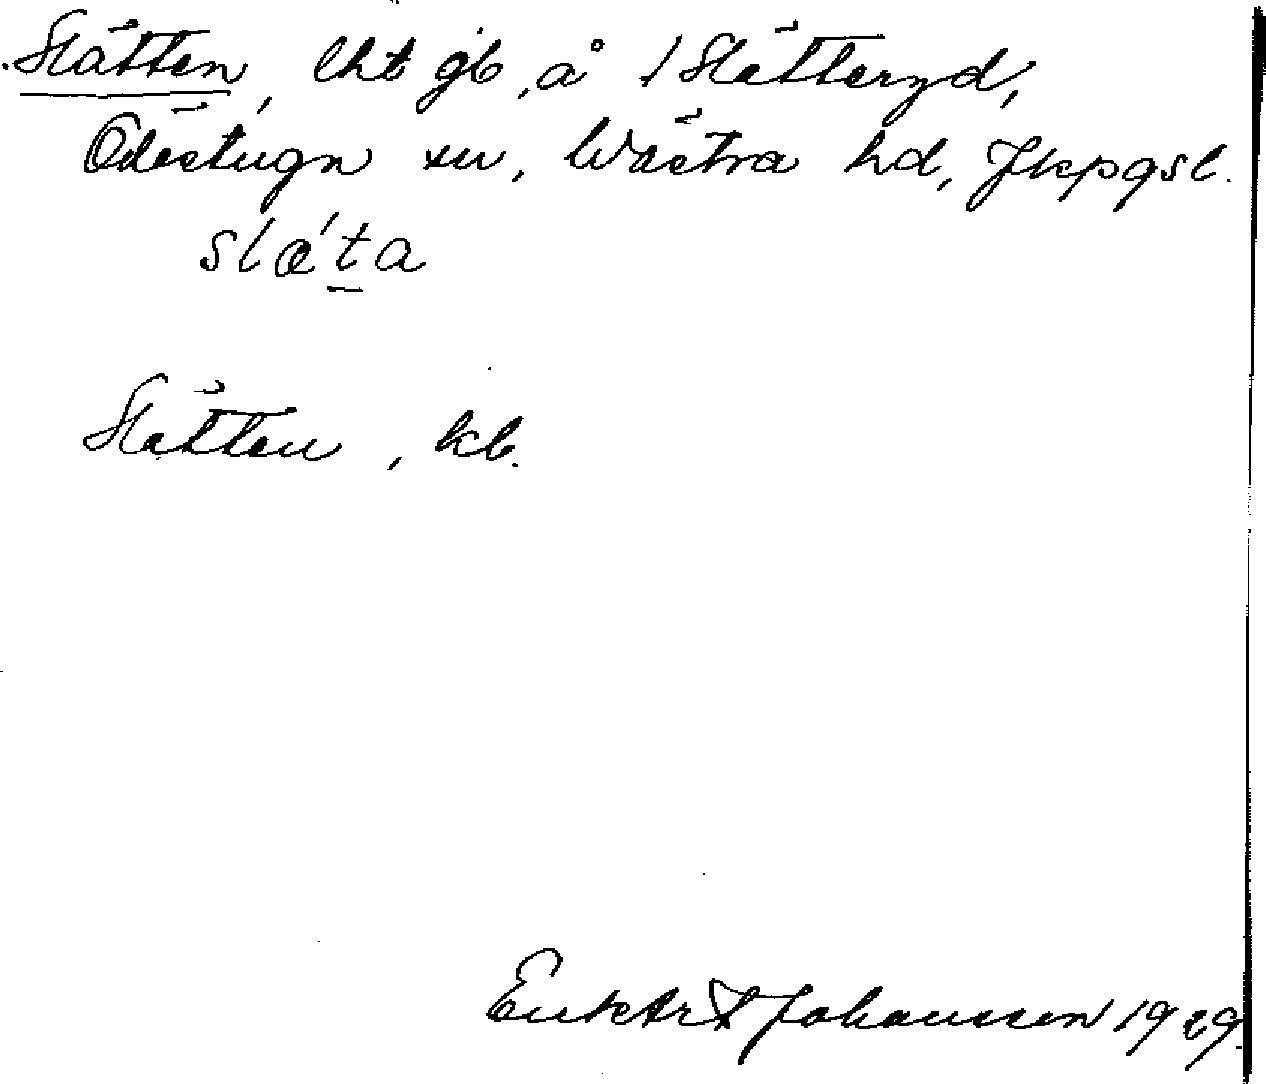 Slätten, lht gb, å 1 Slätteryd,
Ödestugu sn, Wästra hd, Jkpgsl.
slæ´ta
Slätten, kb.
Johansson 1929.